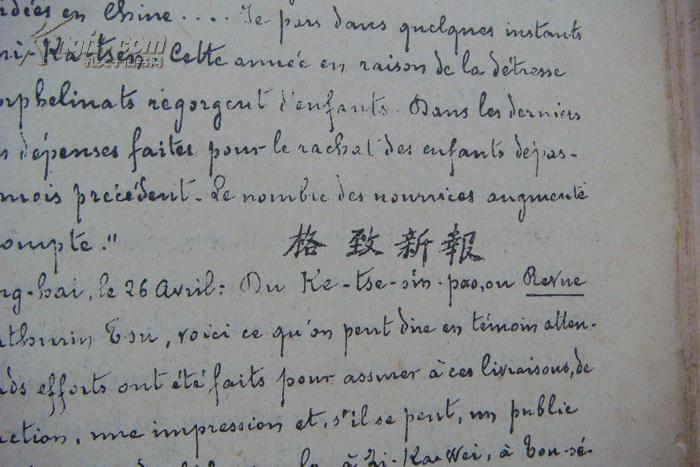 idées en Chine.... Je pars dans quelques instants
Ka-tsen. Cette année en raison de la détresse
orphelinats régorgent d'enfants. Dans les derniers
dépenses faites pour le rachat des enfants dépas-
mois précédent. Le nombre des nourrices augmente
compte."
格致新報
ng-hai, le 26 Avril: Du Ke-tse-sin-pao, ou Revue
athurin Tsu, voici ce qu'on peut dire en témoin atten-
ds efforts ont été faits pour assurer à ces livraisons, de
ction, une impression et, s'il se peut, un public
à Zi-Ka-Wei, à Tou-sé-